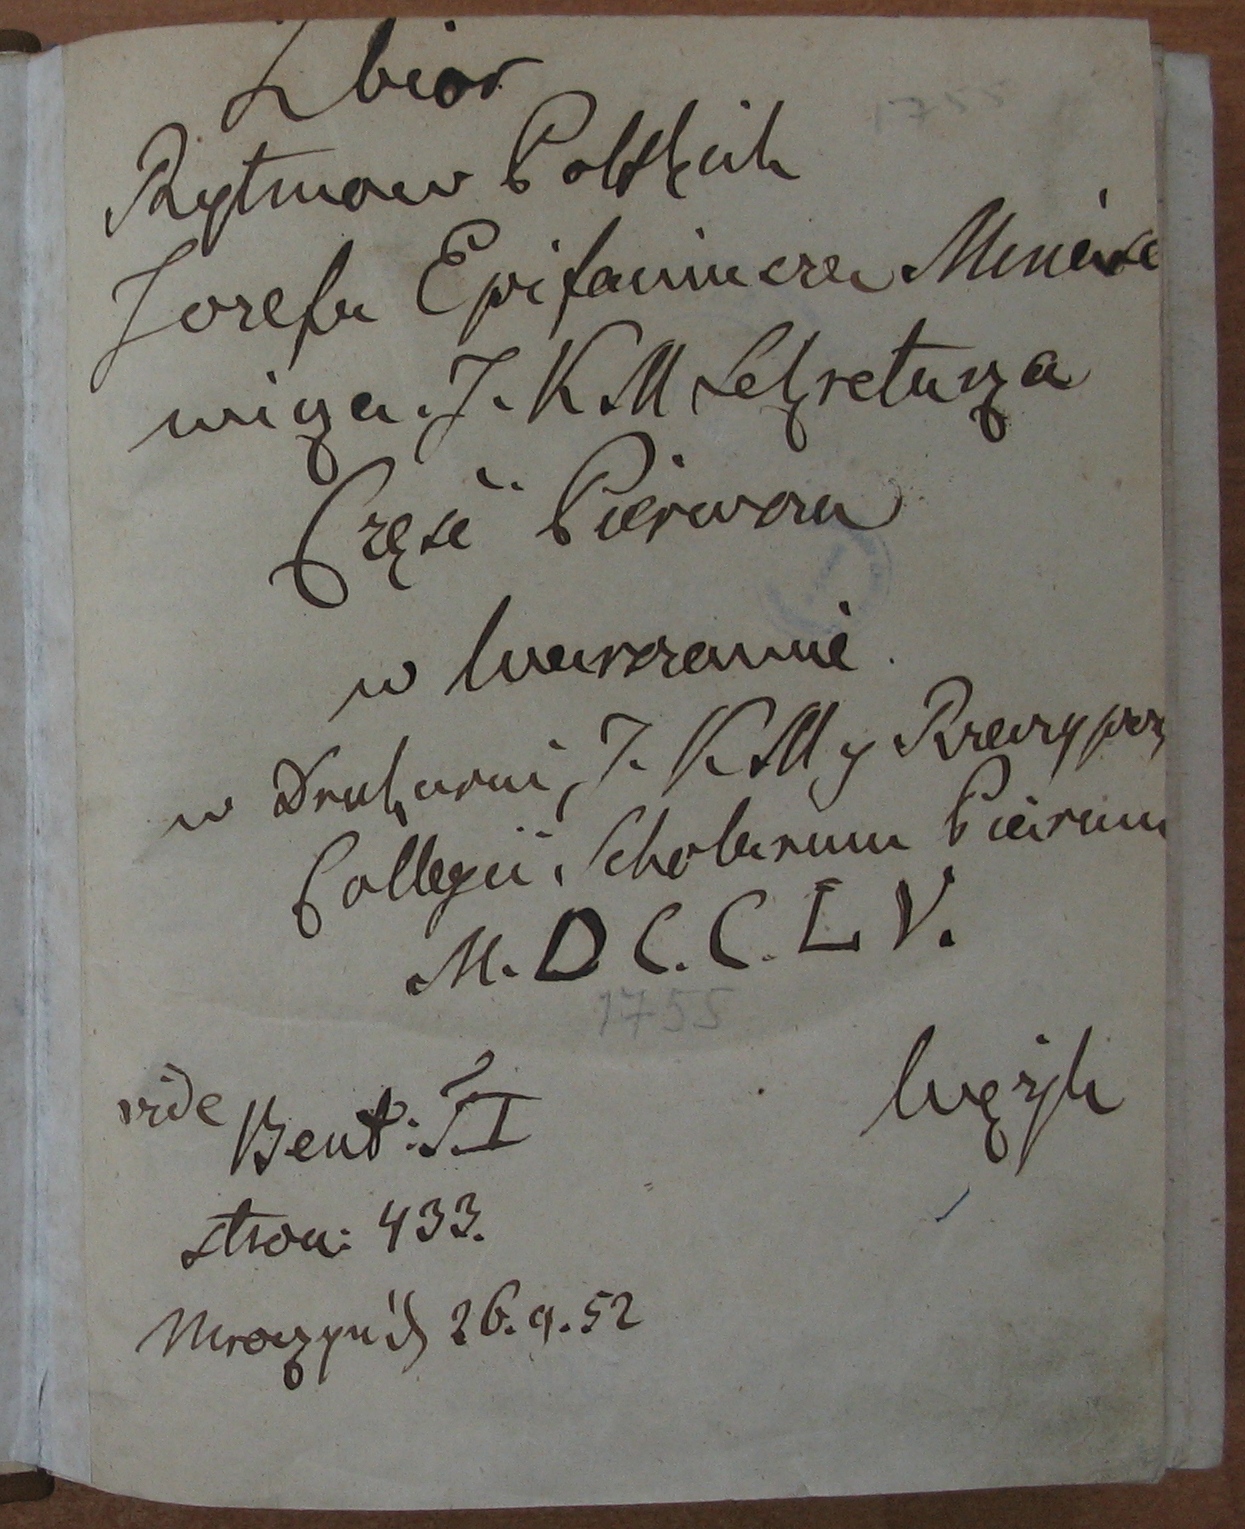 Zbior
1755
Rytmow Polskich
Jozefa Epifaniusza Minaso
wicza. J. K. M Sekretarza
Część Pierwsza
w Warszawie.
w Drukarni J. K. M y Rzeczyposp
Collegii Scholarum Piarum
M. D C. C. L V.
1755
vide Bent: T. I
Wężyk
stron: 433.
26.9.52